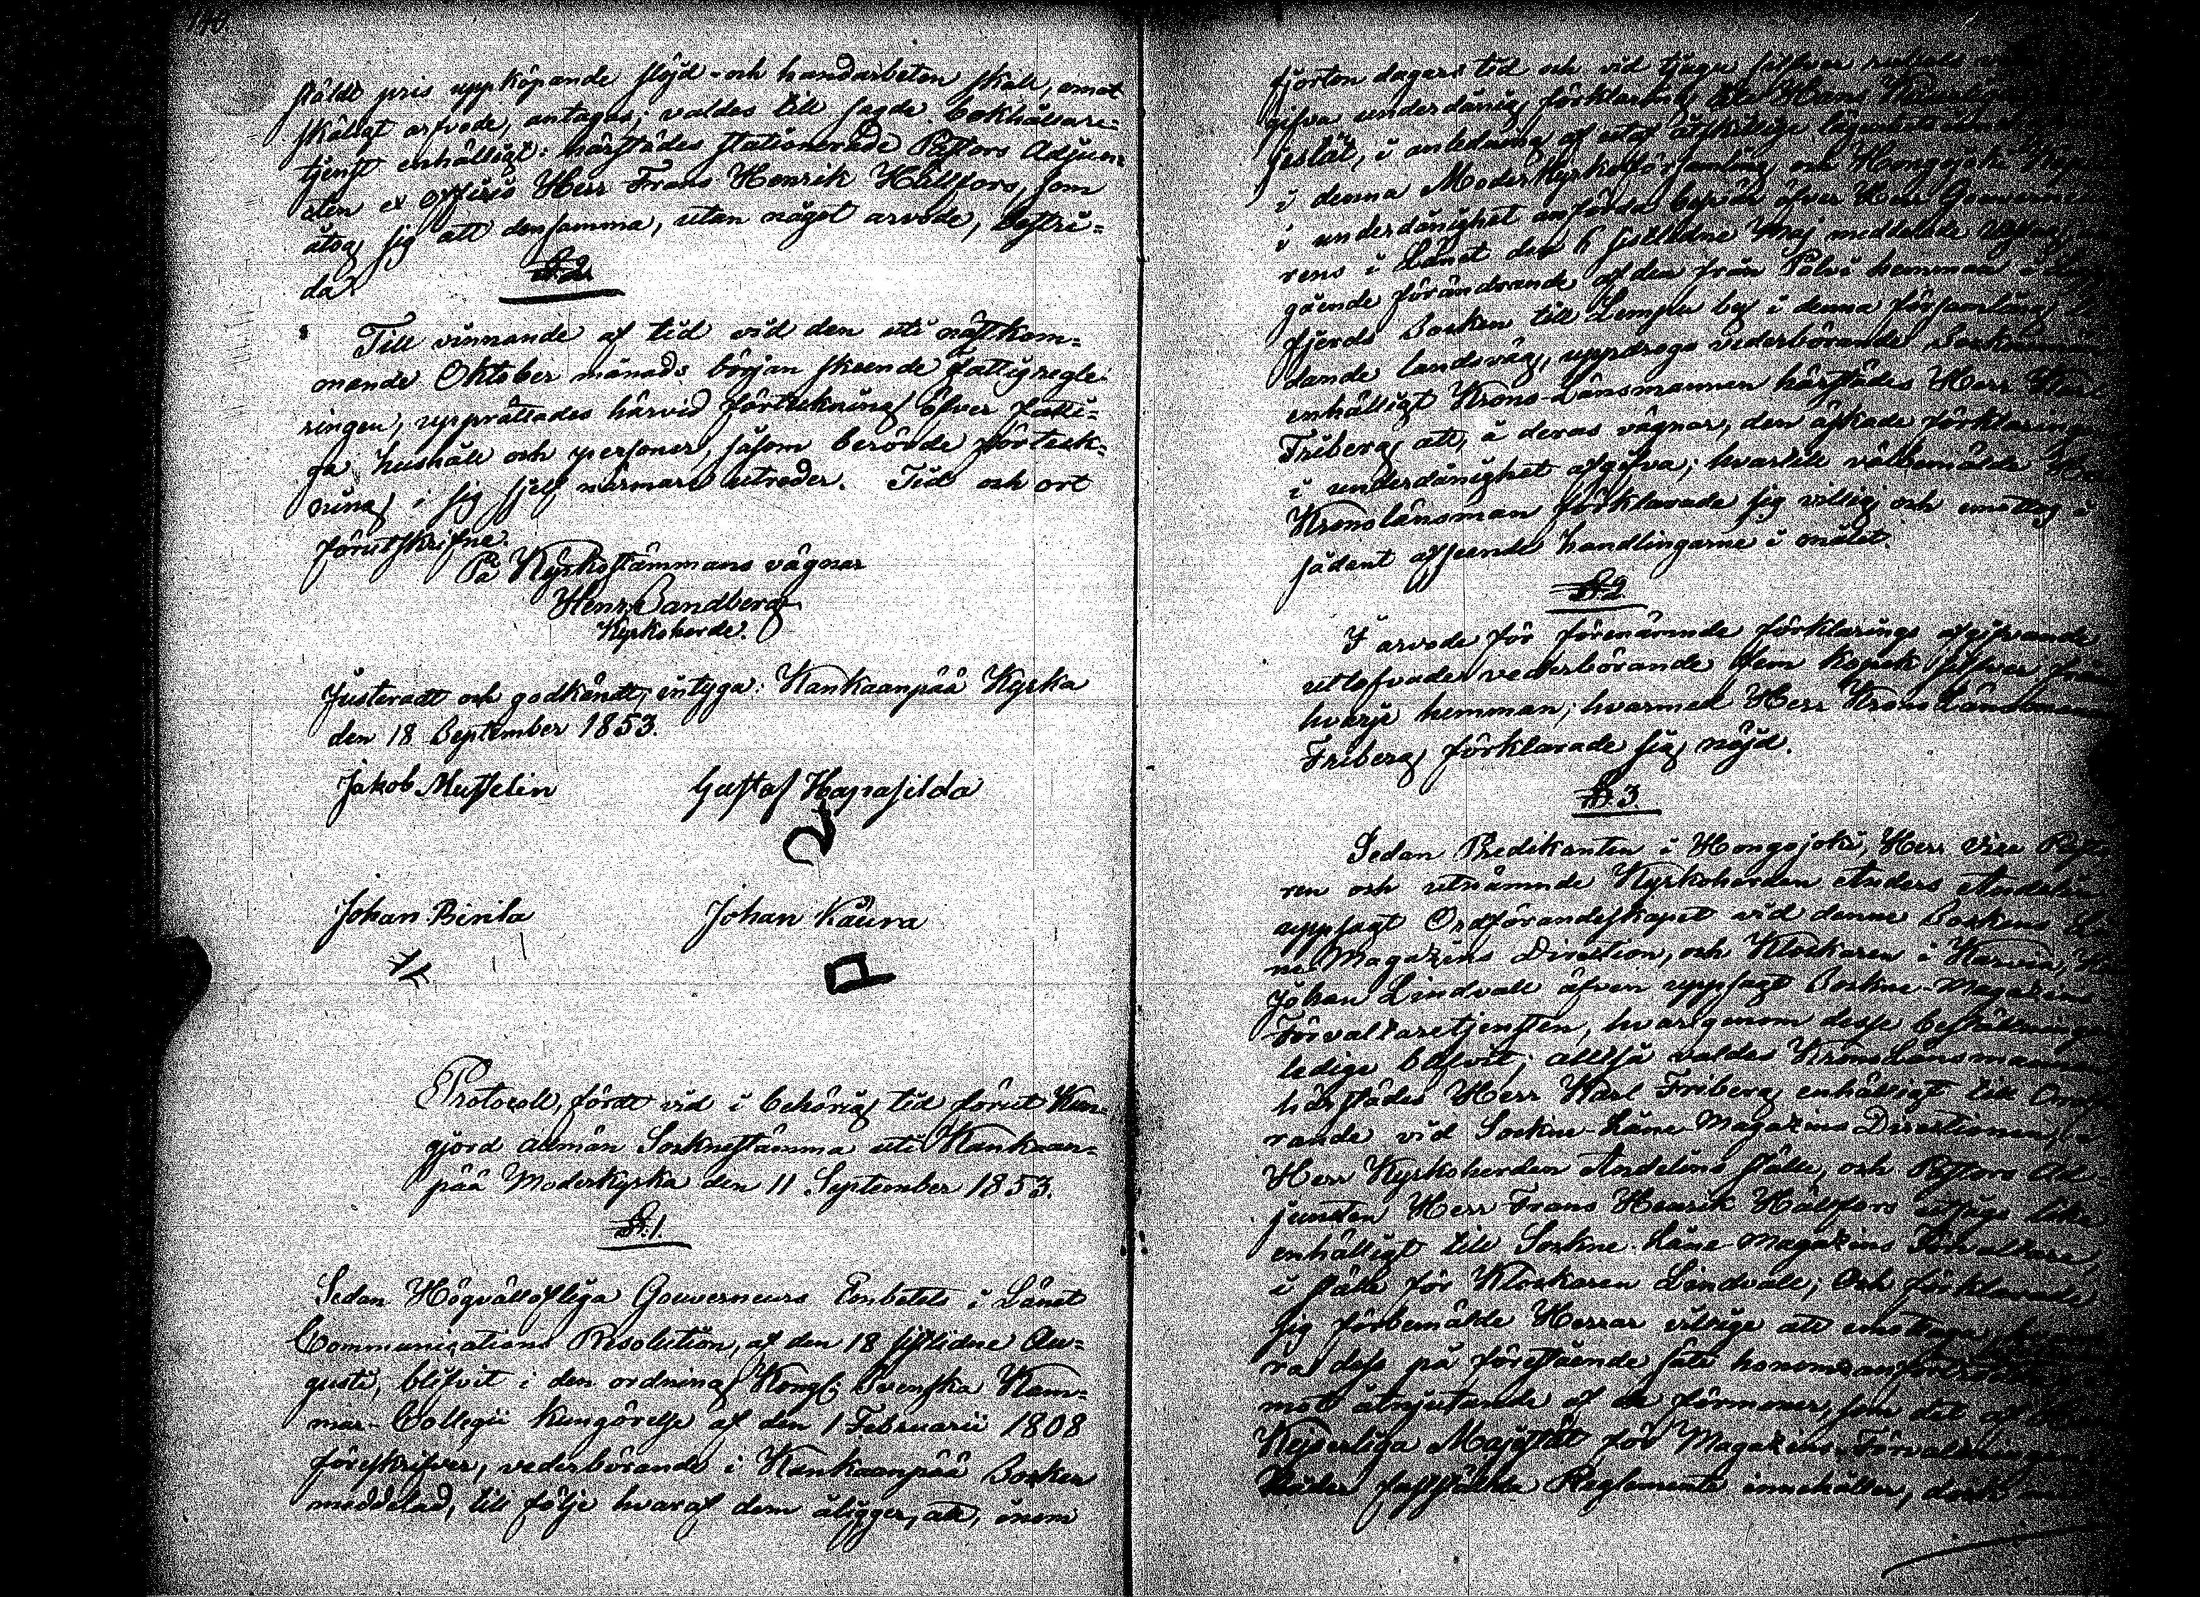 140.
ståldt pris uppköpande slöjd- och handarbeten skall, emot
skäligt arfvode, antagas; valdes till sagde bokhållare-
tjenst enhälligt: härstädes stationerade Pastors Adjunc-
ten ex officio Herr Frans Henrik Hällfors, som
åtog sig att densamma, utan något arvode, bestri-
da.
§.2.
Till vinnande af tid vid den uti nästkom-
mande Oktober månads början skeende fattigregle-
ringen, upprättades härvid förteckning öfver fatti-
ga hushåll och personer, såsom berörde förteck-
ning i sig sjelf närmare utreder. Tid och ort
förutskrifne.
På Kyrkostämmans vägnar
Henr. Sandberg
Kyrkoherde.
Justeradt och godkändt, intyga: Kankaanpää Kyrka
den 18 September 1853.
Jakob Musselin Gustaf Hapasilda
Johan Birila Johan Kaura
Protocoll, fördt vid i behörig tid förut Kun-
gjord allmän Socknestämma uti Kankaan-
pää Moderkyrka den 11 September 1853.
§.1.
Sedan Högvällofliga Gouverneurs Embetets i Länet
Communications Resolution, af den 18 sistlidne Au-
gusti, blifvit i den ordning Kongl. Svenska Kam-
mar-Collegii Kungörelse af den 1 Februarii 1808
föreskrifver, vederbörande i Kankaanpää Socken
meddelad, till följe hvaraf dem åligger, att, inom
fjorton dagars tid och vid tjugu silfver rubels
gifva underdånig förklaring till Hans
jestät, i anledning af utaf åtskillige
i denna Moderkyrkoförsamling och Hongojoki
i underdånighet anförda besvär öfver Herr Gouverneu-
rens i Länet den 6 sistledne Maj meddelde Utslag,
gående förändrande af den från Palvi hemman i
fjerds Socken till Lempu by i denna församling
dande landsväg, uppdrogo vederbörande Sockenmän
enhälligt Krono-Länsmannen härstädes Herr Karl
Friberg att, å deras vägnar, den äskade förklaringen
i underdånighet afgifva; hvartill välbemälde Herr
Kronolänsman förklarade sig villig och emottog i
sådant afseende handlingarne i målet.
§.2
I arvode för förenämnde förklarings afgifvande
utlofvade vederbörande fem kopek silfver från
hvarje hemman; hvarmed Herr Krono Länsmannen
Friberg förklarade sig nöjd.
§.3.
Sedan Predikanten i Hongojoki, Herr Vice Pasto-
ren och utnämnde Kyrkoherden Anders Andelin
uppsagt Ordförandeskapet vid denne Sockens Lå-
ne Magazins Direction, och Klockaren i Karvia,
Johan Lindvall äfven uppsagt Sockne-Magazins
Förvaltaretjensten, hvarigenom desse beställningar
ledige blifvit; alltså valdes KronoLänsmannen
härstädes Herr Karl Friberg enhälligt till Ordfö-
rande vid Sockne-Låne-Magazins Directionen, i
Herr Kyrkoherden Andelins ställe, och Pastors Ad-
juncten Herr Frans Henrik Hällfors utsågs lika
enhälligt till Sockne-Låne-Magazins Förvaltare,
i ställe för Klockaren Lindvall; Och förklarade
sig förbemälde Herrar villige att emottaga
ra dess på föreslående sätt honom anförtrodde
mot åtnjutande af de förmoner, som det af
Kejserliga Majestät för Magazins-Förvaltningen
fastställda Reglemente innehåller,